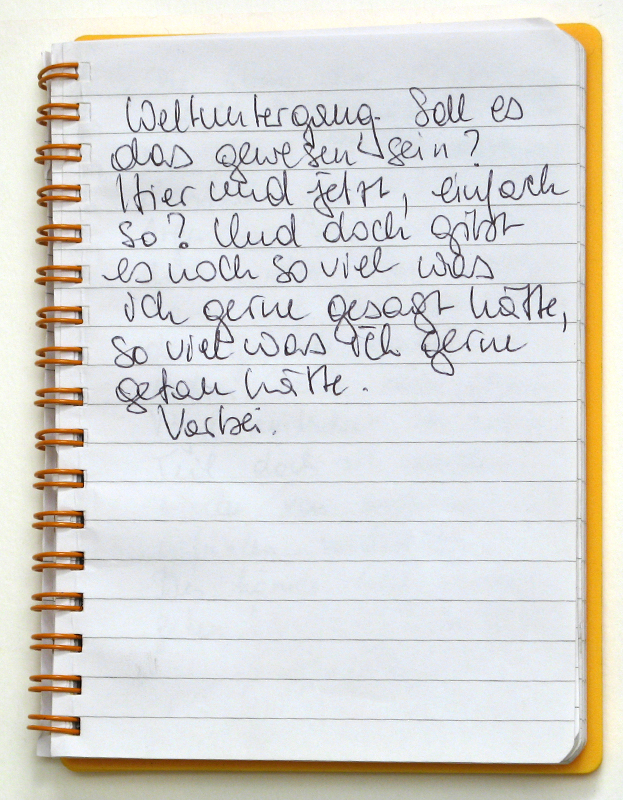 Weltuntergang. Soll es
das gewesen sein?
Hier und jetzt, einfach
so? Und doch gibt
es noch so viel was
ich gerne gesagt hätte,
so viel was ich gerne
getan hätte.
Vorbei.